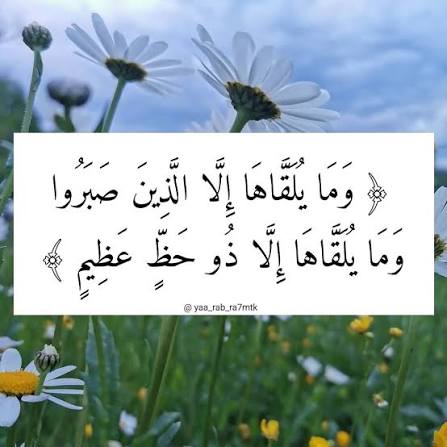 ﴿ وَمَا يُلَقَّاهَا إِلَّا الَّذِينَ صَبَرُوا
وَمَا يُلَقَّاهَا إِلَّا ذُو حَظٍّ عَظِيمٍ ﴾
@ yaa_rab_ra7mtk